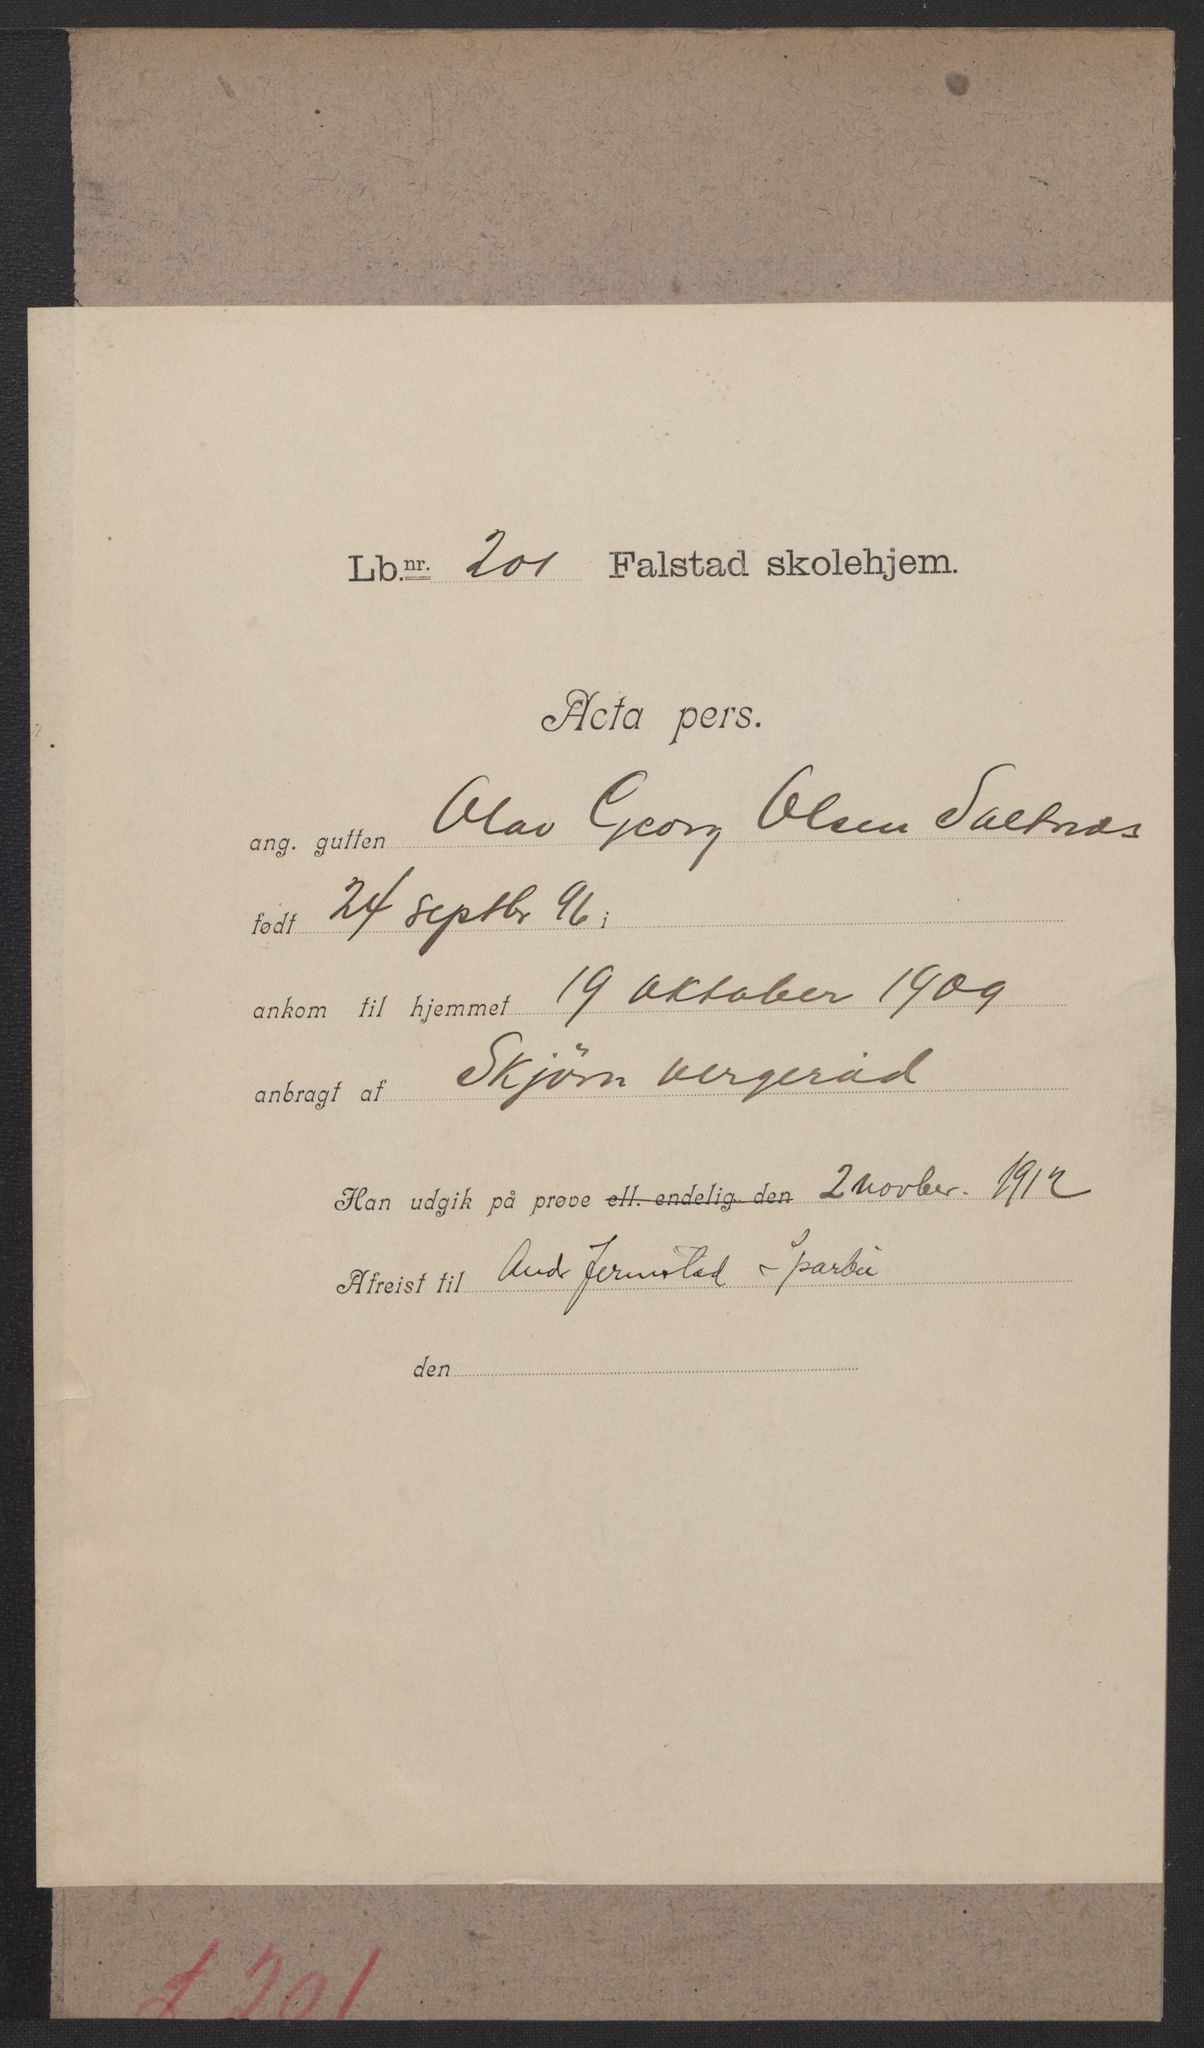 Lb.nr. 201 Falstad skolehjem.
Acta pers.
ang. gutten Olav Georg Olsen Saltnes
født 24 septbr 96 i
ankom til hjemmet 19 oktober 1909
anbragt af Skjörn vergeråd
Han udgik på prøve ell. endelig den 2 novber. 1912
Afreist til And. Jermstad Sparbu
den
L 201